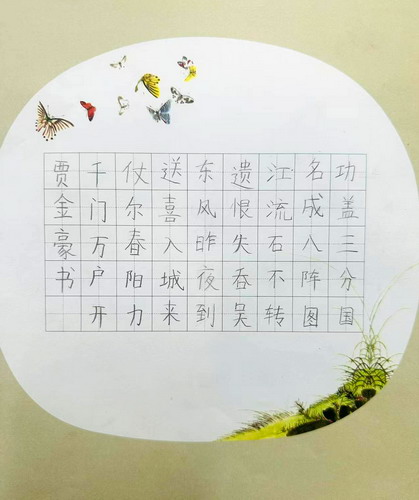 功盖三分国
名成八阵图
江流石不转
遗恨失吞吴
东风昨夜到
送喜入城来
仗尔春阳力
千门万户开
贾金豪书